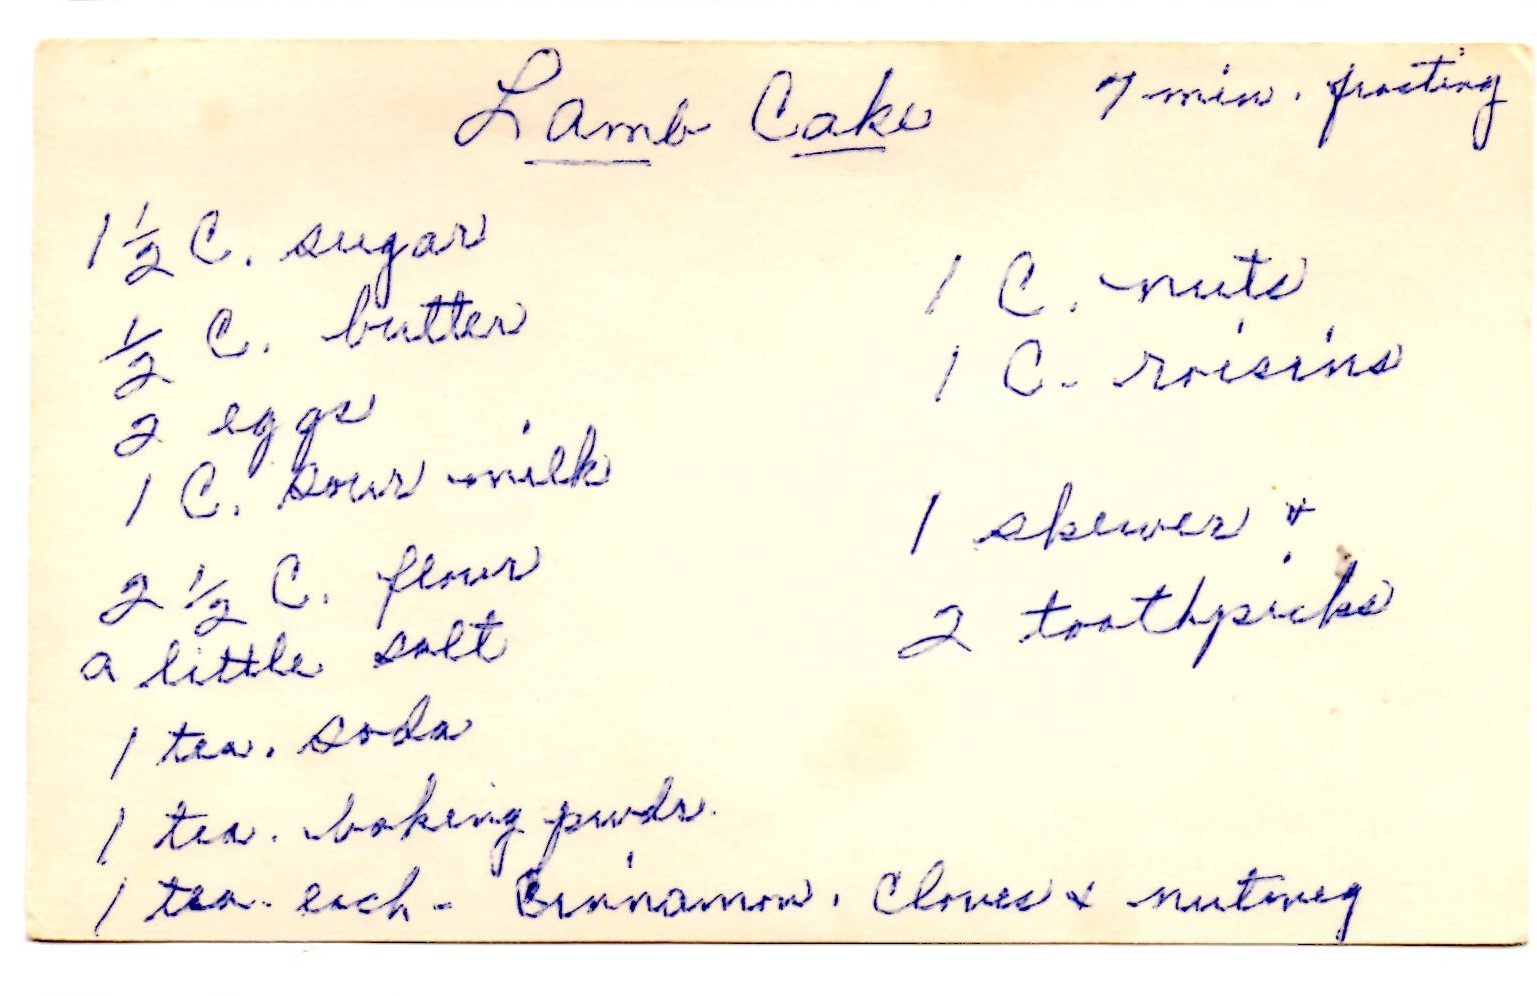 Lamb Cake
7 min. frosting
1 1/2 C. sugar
1/2 C. butter
2 eggs
1 C. sour milk
2 1/2 C. flour
a little salt
1 tea. soda
1 tea. baking pwdr.
1 tea. each - Cinnamon, Cloves & nutmeg
1 C. nuts
1 C. raisins
1 skewer &
2 toothpicks